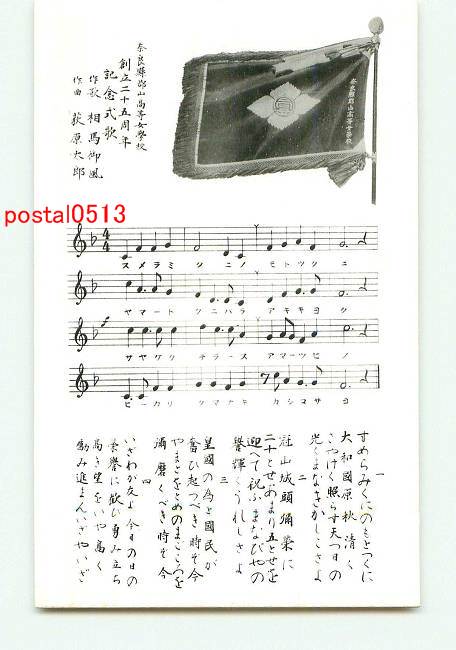 奈良縣郡山高等女學校
創立二十五周年
記念式歌
作歌 相馬御風
作曲 萩原太郎
奈良縣郡山高等女學校
postal0513
スメラミクニノモトツクニ
ヤマートクニハラアキキヨク
サヤケクテラースアマーツヒノ
ヒーカリクマナキカシコサヨ
一
すめらみくにのもとつくに
大和國原秋清く
さやけく照らす天つ日の
光くまなきかしこさよ
二
冠山城頭弥榮に
二十とせあまり五とせを
迎へて祝ふまなびやの
譽輝くうれしさよ
三
皇國の為と國民が
奮ひ起つべき時ぞ今
やまとをとめのまごころを
彌磨くべき時ぞ今
四
いざわが友よ今日の日の
榮譽に歓び勇み立ち
高き望をいや高く
勵み進まんいざやいざ